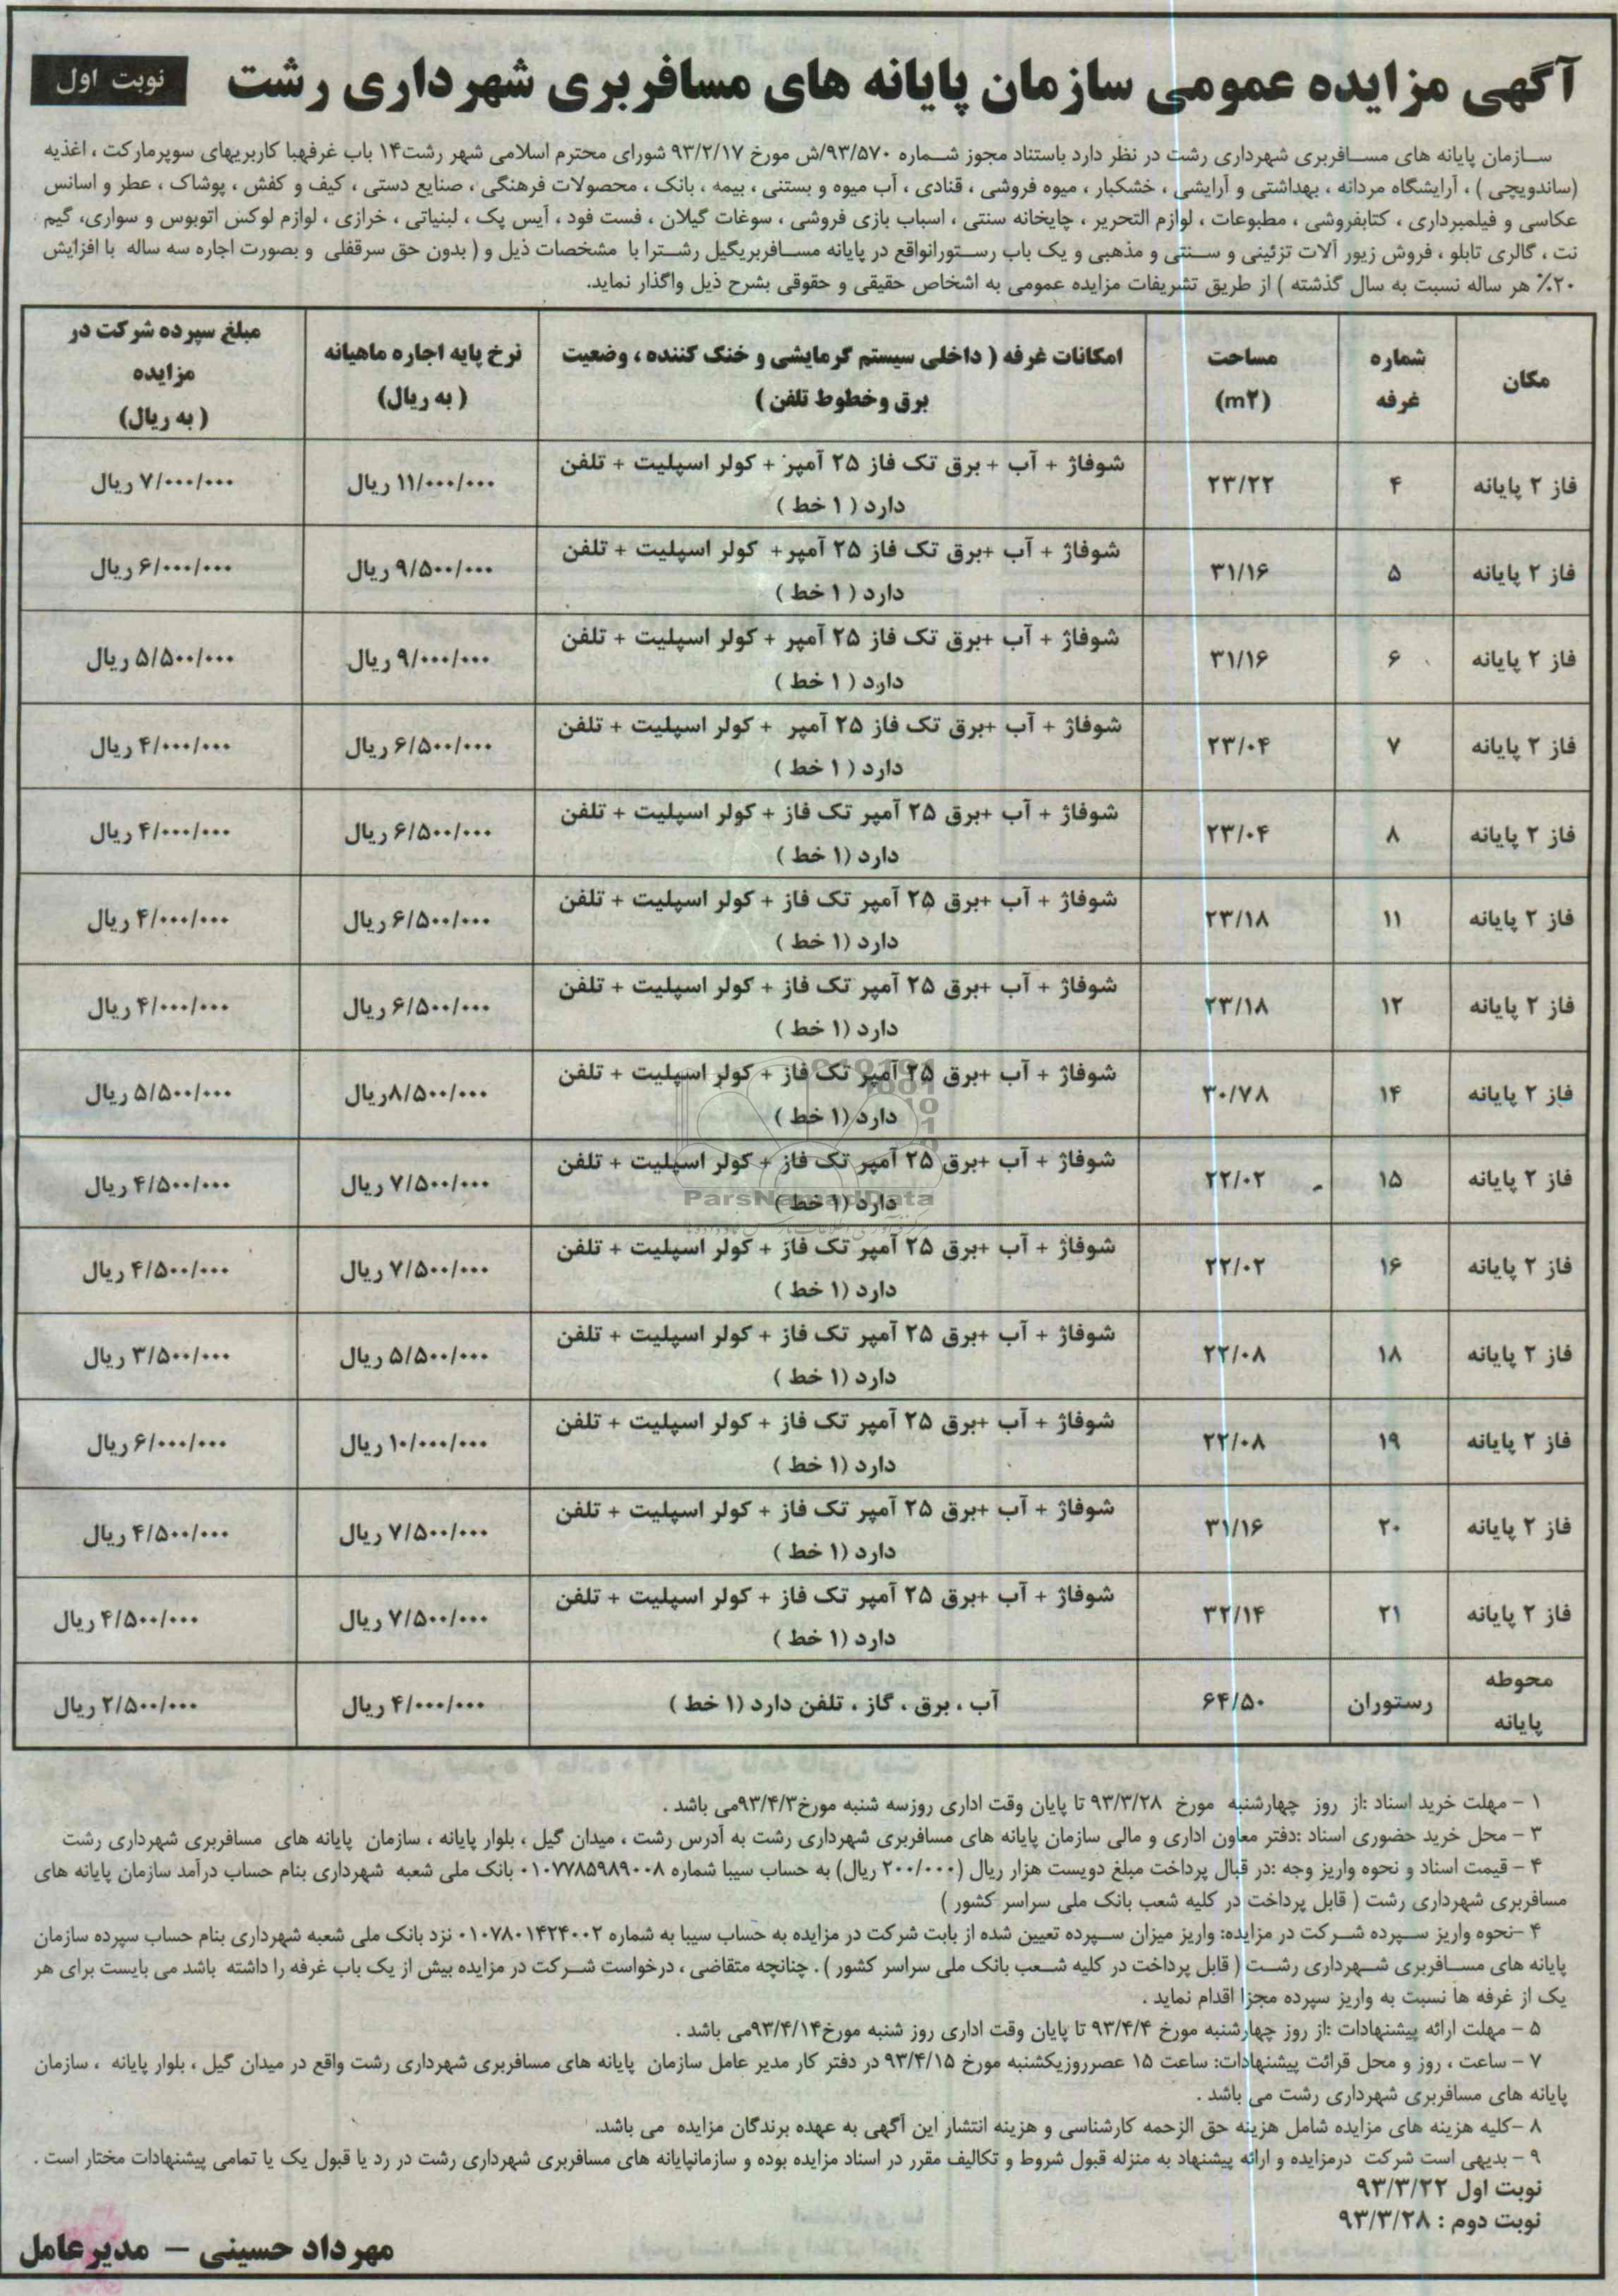 آگهی مزایده عمومی سازمان پایانه های مسافربری شهرداری رشت
نوبت اول
سازمان پایانه های مسافربری شهرداری رشت در نظر دارد باستناد مجوز شماره ۹۳/۵۷۰/ش مورخ ۹۳/۲/۱۷ شورای محترم اسلامی شهر رشت۱۴ باب غرفهبا کاربریهای سوپرمارکت ، اغذیه
(ساندویچی ) ، آرایشگاه مردانه ، بهداشتی و آرایشی ، خشکبار ، میوه فروشی ، قنادی ، آب میوه و بستنی ، بیمه ، بانک ، محصولات فرهنگی ، صنایع دستی ، کیف و کفش ، پوشاک ، عطر و اسانس
عکاسی و فیلمبرداری ، کتابفروشی ، مطبوعات ، لوازم التحریر ، چایخانه سنتی ، اسباب بازی فروشی ، سوغات گیلان ، فست فود ، آیس پک ، لبنیاتی ، خرازی ، لوازم لوکس اتوبوس و سواری، گیم
نت ، گالری تابلو ، فروش زیور آلات تزئینی و سنتی و مذهبی و یک باب رستورانواقع در پایانه مسافربریگیل رشترا با مشخصات ذیل و ( بدون حق سرقفلی و بصورت اجاره سه ساله با افزایش
۲۰٪ هر ساله نسبت به سال گذشته ) از طریق تشریفات مزایده عمومی به اشخاص حقیقی و حقوقی بشرح ذیل واگذار نماید.
مکان | شماره غرفه | مساحت (m۲) | امکانات غرفه ( داخلی سیستم گرمایشی و خنک کننده ، وضعیت برق وخطوط تلفن ) | نرخ پایه اجاره ماهیانه ( به ریال) | مبلغ سپرده شرکت در مزایده ( به ریال)
فاز ۲ پایانه | ۴ | ۲۳/۲۲ | شوفاژ + آب + برق تک فاز ۲۵ آمپر + کولر اسپلیت + تلفن دارد ( ۱ خط ) | ۱۱/۰۰۰/۰۰۰ ریال | ۷/۰۰۰/۰۰۰ ریال
فاز ۲ پایانه | ۵ | ۳۱/۱۶ | شوفاژ + آب +برق تک فاز ۲۵ آمپر+ کولر اسپلیت + تلفن دارد ( ۱ خط ) | ۹/۵۰۰/۰۰۰ ریال | ۶/۰۰۰/۰۰۰ ریال
فاز ۲ پایانه | ۶ | ۳۱/۱۶ | شوفاژ + آب +برق تک فاز ۲۵ آمپر + کولر اسپلیت + تلفن دارد ( ۱ خط ) | ۹/۰۰۰/۰۰۰ ریال | ۵/۵۰۰/۰۰۰ ریال
فاز ۲ پایانه | ۷ | ۲۳/۰۴ | شوفاژ + آب +برق تک فاز ۲۵ آمپر + کولر اسپلیت + تلفن دارد ( ۱ خط ) | ۶/۵۰۰/۰۰۰ ریال | ۴/۰۰۰/۰۰۰ ریال
فاز ۲ پایانه | ۸ | ۲۳/۰۴ | شوفاژ + آب +برق ۲۵ آمپر تک فاز + کولر اسپلیت + تلفن دارد (۱ خط ) | ۶/۵۰۰/۰۰۰ ریال | ۴/۰۰۰/۰۰۰ ریال
فاز ۲ پایانه | ۱۱ | ۲۳/۱۸ | شوفاژ + آب +برق ۲۵ آمپر تک فاز + کولر اسپلیت + تلفن دارد (۱ خط ) | ۶/۵۰۰/۰۰۰ ریال | ۴/۰۰۰/۰۰۰ ریال
فاز ۲ پایانه | ۱۲ | ۲۳/۱۸ | شوفاژ + آب +برق ۲۵ آمپر تک فاز + کولر اسپلیت + تلفن دارد (۱ خط ) | ۶/۵۰۰/۰۰۰ ریال | ۴/۰۰۰/۰۰۰ ریال
فاز ۲ پایانه | ۱۴ | ۳۰/۷۸ | شوفاژ + آب +برق ۲۵ آمپر تک فاز + کولر اسپلیت + تلفن دارد (۱ خط ) | ۸/۵۰۰/۰۰۰ریال | ۵/۵۰۰/۰۰۰ ریال
فاز ۲ پایانه | ۱۵ | ۲۲/۰۲ | شوفاژ + آب +برق ۲۵ آمپر تک فاز + کولر اسپلیت + تلفن دارد (۱ خط ) | ۷/۵۰۰/۰۰۰ ریال | ۴/۵۰۰/۰۰۰ ریال
فاز ۲ پایانه | ۱۶ | ۲۲/۰۲ | شوفاژ + آب +برق ۲۵ آمپر تک فاز + کولر اسپلیت + تلفن دارد (۱ خط ) | ۷/۵۰۰/۰۰۰ ریال | ۴/۵۰۰/۰۰۰ ریال
فاز ۲ پایانه | ۱۸ | ۲۲/۰۸ | شوفاژ + آب +برق ۲۵ آمپر تک فاز + کولر اسپلیت + تلفن دارد (۱ خط ) | ۵/۵۰۰/۰۰۰ ریال | ۳/۵۰۰/۰۰۰ ریال
فاز ۲ پایانه | ۱۹ | ۲۲/۰۸ | شوفاژ + آب +برق ۲۵ آمپر تک فاز + کولر اسپلیت + تلفن دارد (۱ خط ) | ۱۰/۰۰۰/۰۰۰ ریال | ۶/۰۰۰/۰۰۰ ریال
فاز ۲ پایانه | ۲۰ | ۳۱/۱۶ | شوفاژ + آب +برق ۲۵ آمپر تک فاز + کولر اسپلیت + تلفن دارد (۱ خط ) | ۷/۵۰۰/۰۰۰ ریال | ۴/۵۰۰/۰۰۰ ریال
فاز ۲ پایانه | ۲۱ | ۳۲/۱۴ | شوفاژ + آب +برق ۲۵ آمپر تک فاز + کولر اسپلیت + تلفن دارد (۱ خط ) | ۷/۵۰۰/۰۰۰ ریال | ۴/۵۰۰/۰۰۰ ریال
محوطه پایانه | رستوران | ۶۴/۵۰ | آب ، برق ، گاز ، تلفن دارد (۱ خط ) | ۴/۰۰۰/۰۰۰ ریال | ۲/۵۰۰/۰۰۰ ریال
ParsNamadData
۱ – مهلت خرید اسناد :از روز چهارشنبه مورخ ۹۳/۳/۲۸ تا پایان وقت اداری روزسه شنبه مورخ۹۳/۴/۳می باشد .
۳ – محل خرید حضوری اسناد :دفتر معاون اداری و مالی سازمان پایانه های مسافربری شهرداری رشت به آدرس رشت ، میدان گیل ، بلوار پایانه ، سازمان پایانه های مسافربری شهرداری رشت
۴ – قیمت اسناد و نحوه واریز وجه :در قبال پرداخت مبلغ دویست هزار ریال (۲۰۰/۰۰۰ ریال) به حساب سیبا شماره ۰۱۰۷۷۸۵۹۸۹۰۰۸ بانک ملی شعبه شهرداری بنام حساب درآمد سازمان پایانه های
مسافربری شهرداری رشت ( قابل پرداخت در کلیه شعب بانک ملی سراسر کشور )
۴ –نحوه واریز سپرده شرکت در مزایده: واریز میزان سپرده تعیین شده از بابت شرکت در مزایده به حساب سیبا به شماره ۰۱۰۷۸۰۱۴۲۴۰۰۲ نزد بانک ملی شعبه شهرداری بنام حساب سپرده سازمان
پایانه های مسافربری شهرداری رشت ( قابل پرداخت در کلیه شعب بانک ملی سراسر کشور ) . چنانچه متقاضی ، درخواست شرکت در مزایده بیش از یک باب غرفه را داشته باشد می بایست برای هر
یک از غرفه ها نسبت به واریز سپرده مجزا اقدام نماید .
۵ – مهلت ارائه پیشنهادات :از روز چهارشنبه مورخ ۹۳/۴/۴ تا پایان وقت اداری روز شنبه مورخ۹۳/۴/۱۴می باشد .
۷ – ساعت ، روز و محل قرائت پیشنهادات: ساعت ۱۵ عصرروزیکشنبه مورخ ۹۳/۴/۱۵ در دفتر کار مدیر عامل سازمان پایانه های مسافربری شهرداری رشت واقع در میدان گیل ، بلوار پایانه ، سازمان
پایانه های مسافربری شهرداری رشت می باشد .
۸ –کلیه هزینه های مزایده شامل هزینه حق الزحمه کارشناسی و هزینه انتشار این آگهی به عهده برندگان مزایده می باشد.
۹ – بدیهی است شرکت درمزایده و ارائه پیشنهاد به منزله قبول شروط و تکالیف مقرر در اسناد مزایده بوده و سازمانپایانه های مسافربری شهرداری رشت در رد یا قبول یک یا تمامی پیشنهادات مختار است .
نوبت اول ۹۳/۳/۲۲
نوبت دوم : ۹۳/۳/۲۸
مهرداد حسینی – مدیرعامل